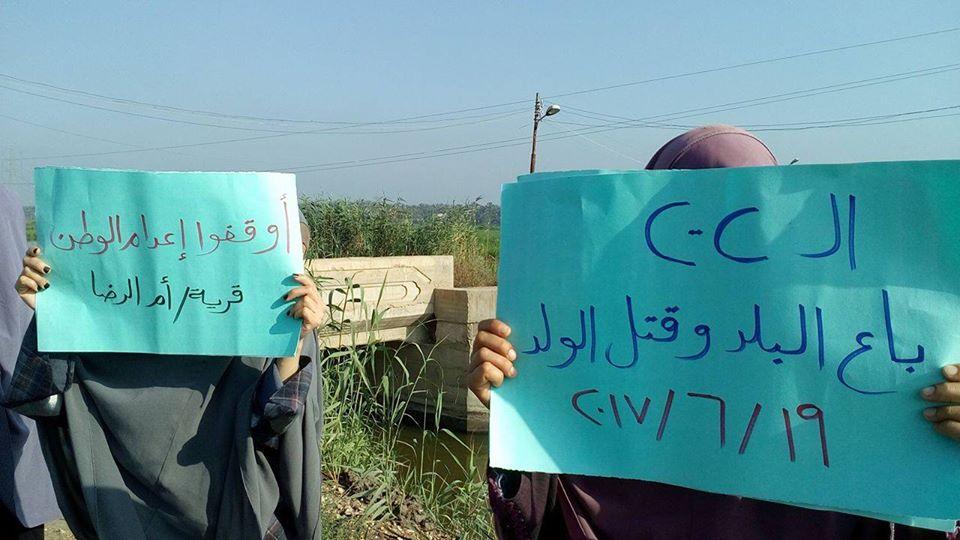 أوقفوا إعدام الوطن
قرية/أم الرضا
الـ C-C
باع البلد وقتل الولد
١٩/٦/٢٠١٧